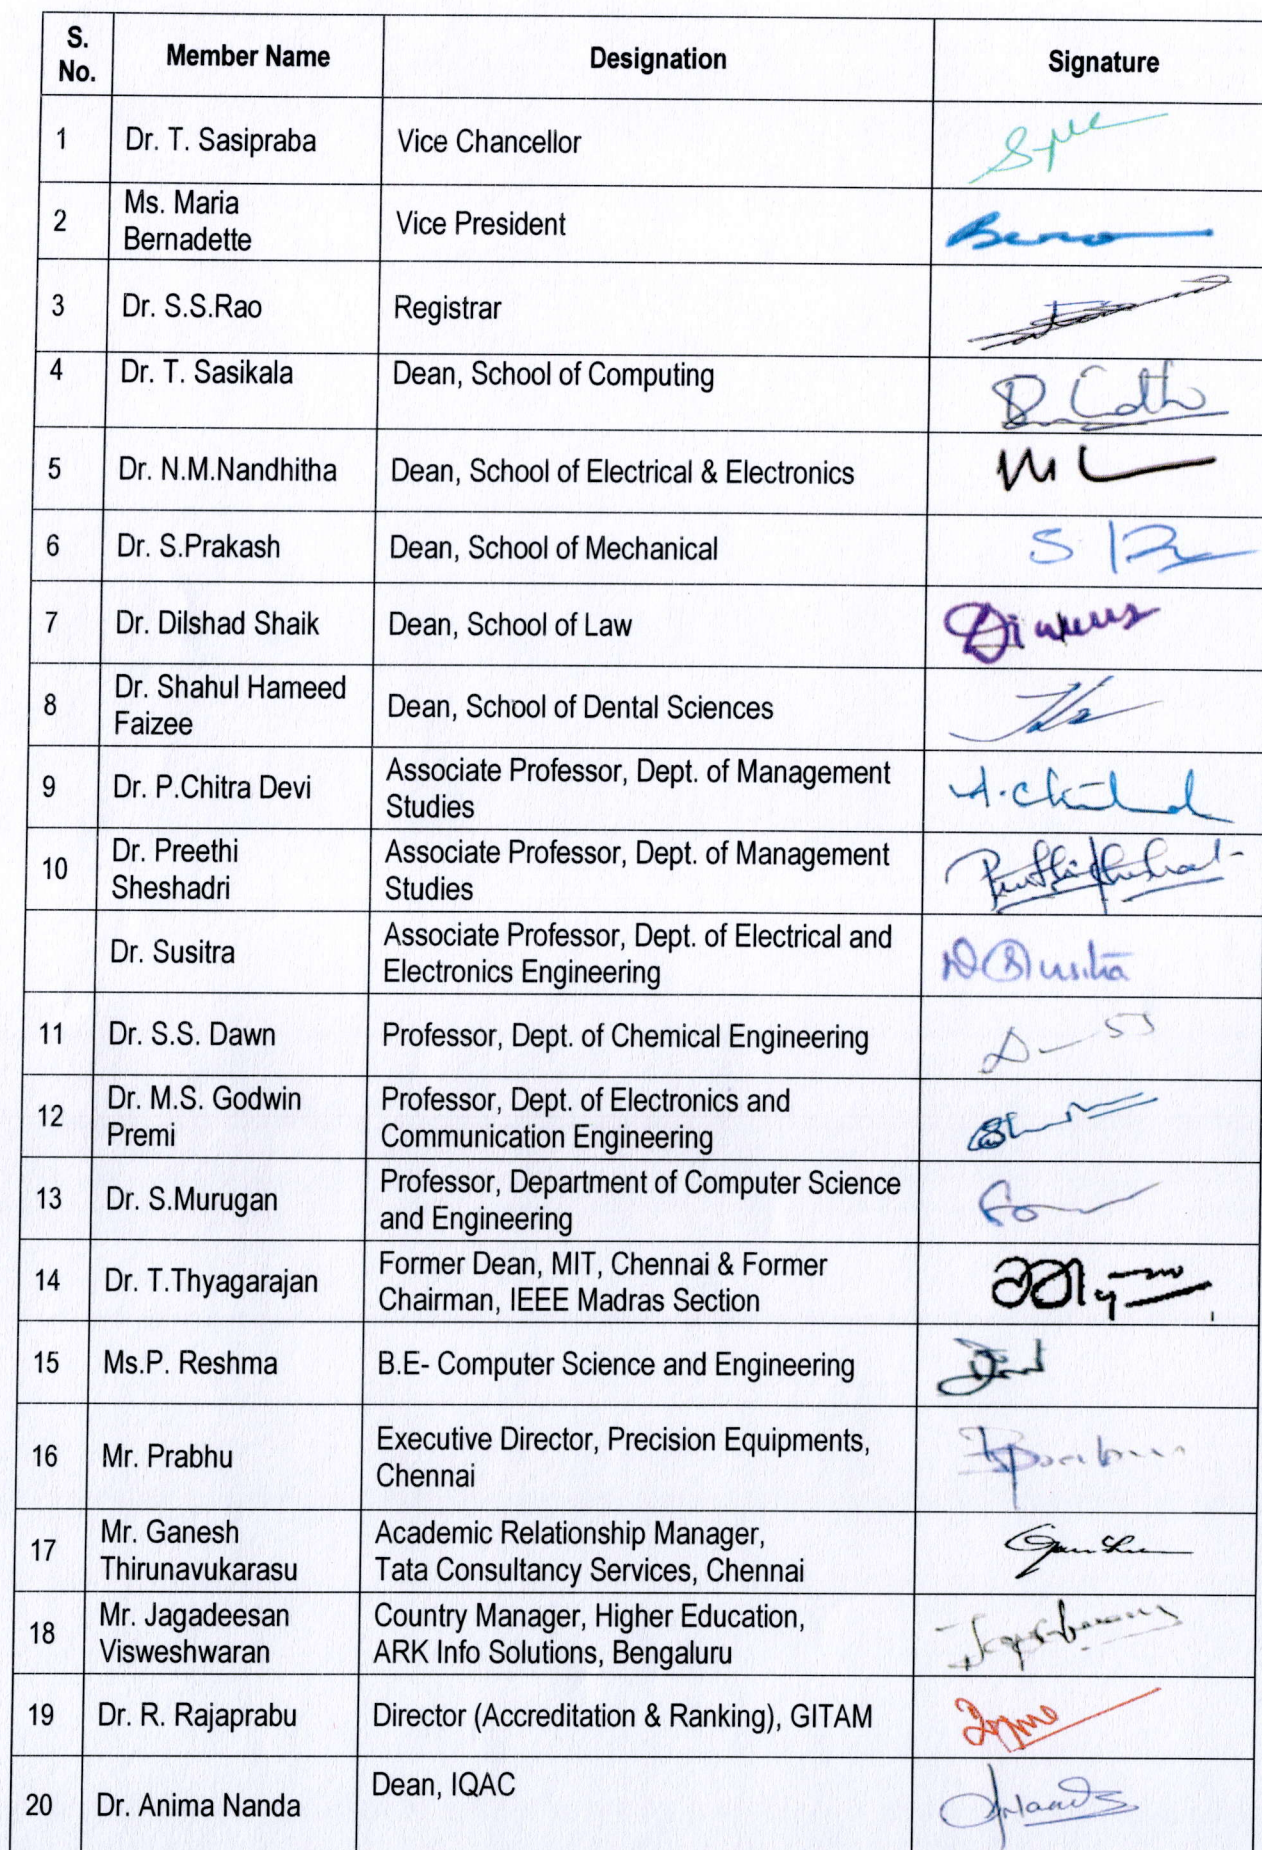 S.
No.
Member Name
Designation
Signature
1
Dr. T. Sasipraba
Vice Chancellor
2
Ms. Maria
Bernadette
Vice President
3
Dr. S.S.Rao
Registrar
4
Dr. T. Sasikala
Dean, School of Computing
5
Dr. N.M.Nandhitha
Dean, School of Electrical & Electronics
6
Dr. S.Prakash
Dean, School of Mechanical
7
Dr. Dilshad Shaik
Dean, School of Law
8
Dr. Shahul Hameed
Faizee
Dean, School of Dental Sciences
9
Dr. P.Chitra Devi
Associate Professor, Dept. of Management
Studies
10
Dr. Preethi
Sheshadri
Associate Professor, Dept. of Management
Studies
Dr. Susitra
Associate Professor, Dept. of Electrical and
Electronics Engineering
11
Dr. S.S. Dawn
Professor, Dept. of Chemical Engineering
12
Dr. M.S. Godwin
Premi
Professor, Dept. of Electronics and
Communication Engineering
13
Dr. S.Murugan
Professor, Department of Computer Science
and Engineering
14
Dr. T.Thyagarajan
Former Dean, MIT, Chennai & Former
Chairman, IEEE Madras Section
15
Ms.P. Reshma
B.E- Computer Science and Engineering
16
Mr. Prabhu
Executive Director, Precision Equipments,
Chennai
17
Mr. Ganesh
Thirunavukarasu
Academic Relationship Manager,
Tata Consultancy Services, Chennai
18
Mr. Jagadeesan
Visweshwaran
Country Manager, Higher Education,
ARK Info Solutions, Bengaluru
19
Dr. R. Rajaprabu
Director (Accreditation & Ranking), GITAM
20
Dr. Anima Nanda
Dean, IQAC